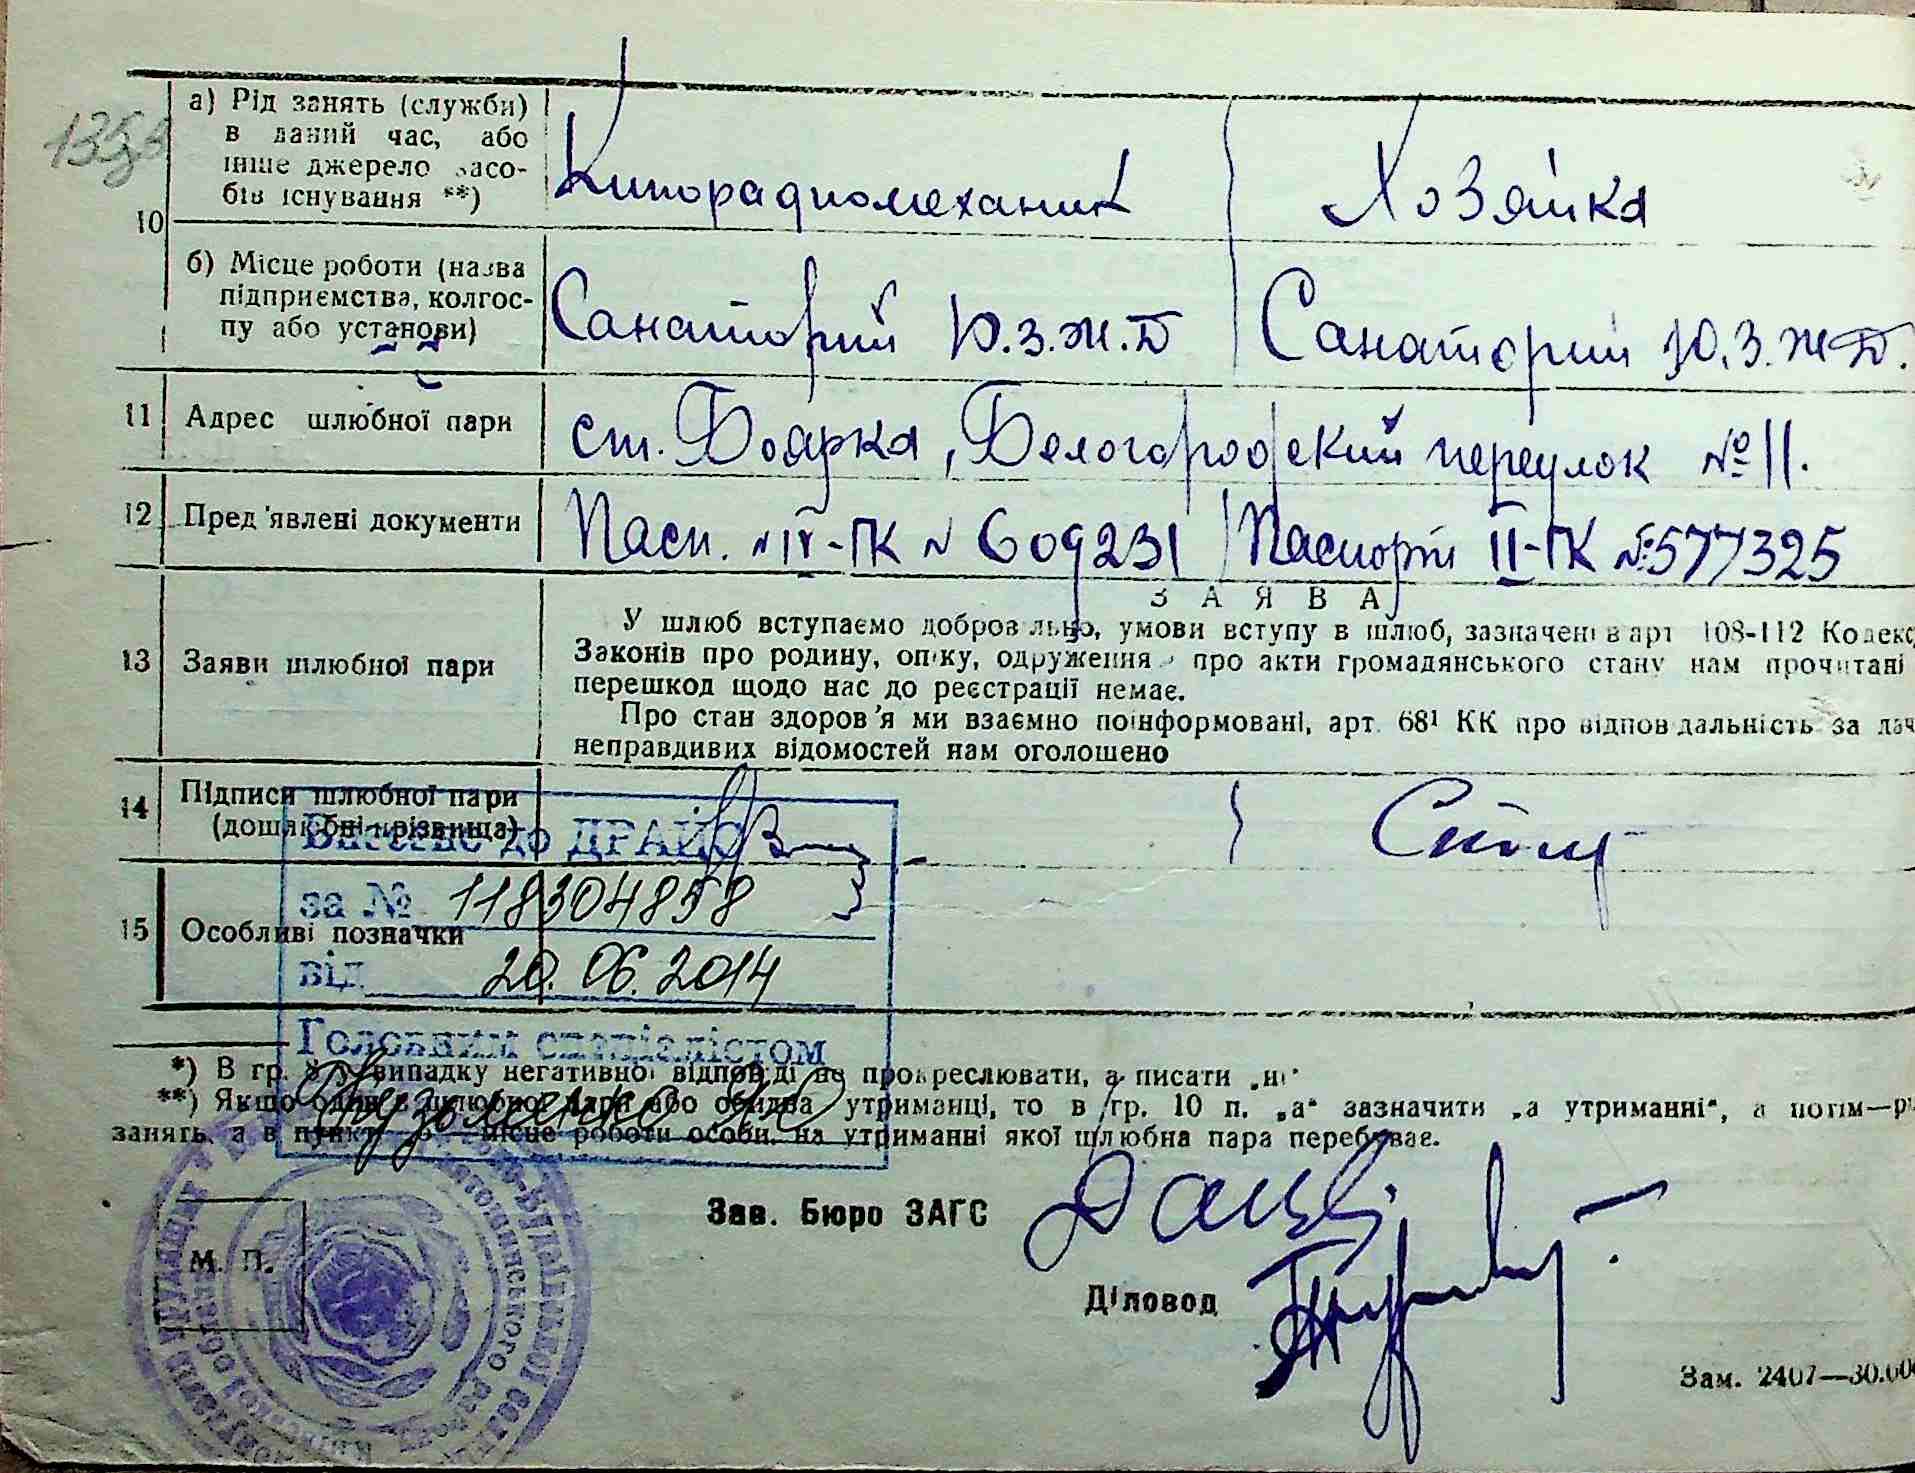 а) Рід занять (служби)
в даний час, або
інше джерело засо-
бів існування **)
Кинорадиомеханик
Хозяйка
10
б) Місце роботи (назва
підприємства, колгос-
пу або установи)
Санаторий Ю.З.Ж.Д
Санаторий Ю.З.Ж.Д.
11 Адрес шлюбної пари
ст. Боярка, Белогородский переулок № 11.
12 Пред'явлені документи
Пасп. № IV-ПК № 609231
Паспорт II-ПК №577325
З А Я В А
13 Заяви шлюбної пари
У шлюб вступаємо добровільно, умови вступу в шлюб, зазначені в арт 108-112 Кодекс
Законів про родину, опіку, одруження і про акти громадянського стану нам прочитані
перешкод щодо нас до реєстрації немає.
Про стан здоров'я ми взаємно поінформовані, арт. 68¹ КК про відповідальність за дач
неправдивих відомостей нам оголошено
14 Підписи шлюбної пари
(дошлюбні прізвища)
Внесено до ДРАЦС
за № 118304858
15 Особливі позначки
від 20.06.2014
Головним спеціалістом
*) В гр. 8 у випадку негативної відповіді не прокреслювати, а писати „ні"
**) Якщо один з шлюбної пари або обидва утриманці, то в гр. 10 п. „а" зазначити „а утриманні", а потім—рі
занять, а в пункті „б" місце роботи особи, на утриманні якої шлюбна пара перебуває.
Зав. Бюро ЗАГС
М. П.
Діловод
Зам. 2407—30.00